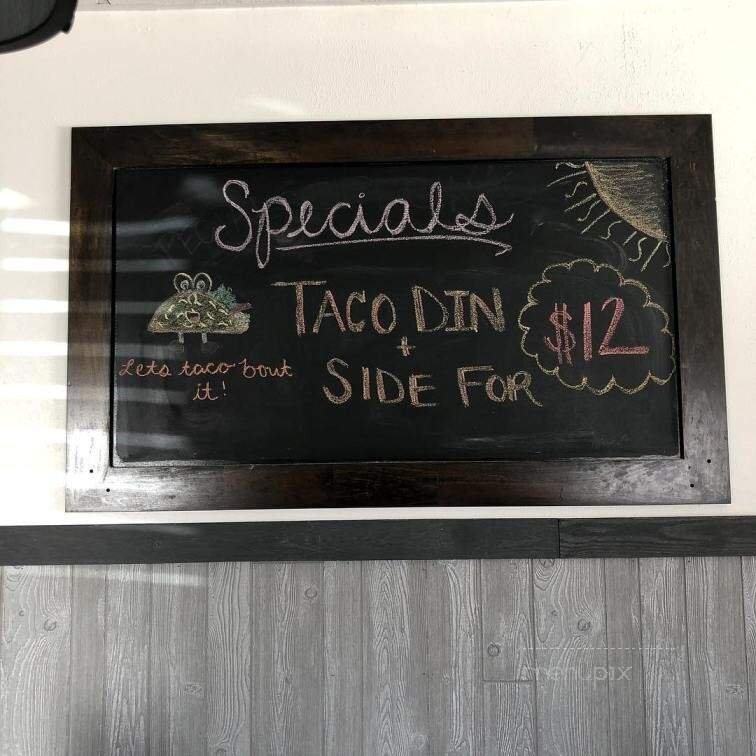 Specials
TACO DIN
+
SIDE FOR
$12
Lets taco 'bout
it!
menupix